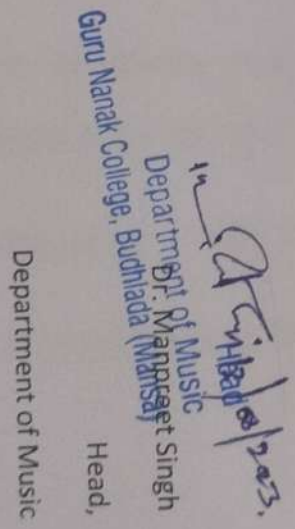 Head
Department of Music
Guru Nanak College, Budhlada (Mansa)
Dr. Manpreet Singh
Head,
Department of Music